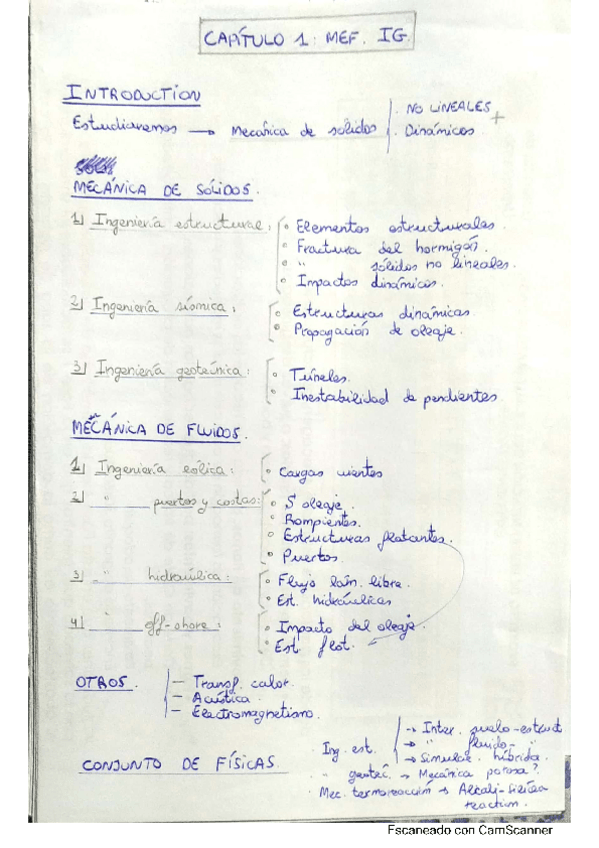 CAPÍTULO 1: MEF. IG.
INTRODUCTION
Estudiaremos → Mecánica de sólidos
. NO LINEALES +
. Dinámicos
MECÁNICA DE SÓLIDOS.
1) Ingeniería estructural:
• Elementos estructurales.
• Fractura del hormigón.
• " sólidos no lineales.
• Impactos dinámicos.
2) Ingeniería sísmica:
• Estructuras dinámicas
• Propagación de oleaje.
3) Ingeniería geotécnica:
• Túneles.
• Inestabilidad de pendientes
MECÁNICA DE FLUIDOS.
1) Ingeniería eólica:
• Cargas vientos
2) " puertos y costas:
• oleaje.
• Rompientes.
• Estructuras flotantes.
• Puertos.
3) " hidráulica:
• Flujo lám. libre.
• Est. hidráulicas
4) " off-shore:
• Impacto del oleaje.
• Est. flot.
OTROS.
- Transf. calor.
- Acústica.
- Electromagnetismo.
CONJUNTO DE FÍSICAS.
Ing. est.
→ Inter. suelo-estruct
→ " fluido- "
→ Simulac. híbrida.
" geotéc. → Mecánica porosa?
Mec. termoreacción → Alkali-Silica
reaction.
Escaneado con CamScanner